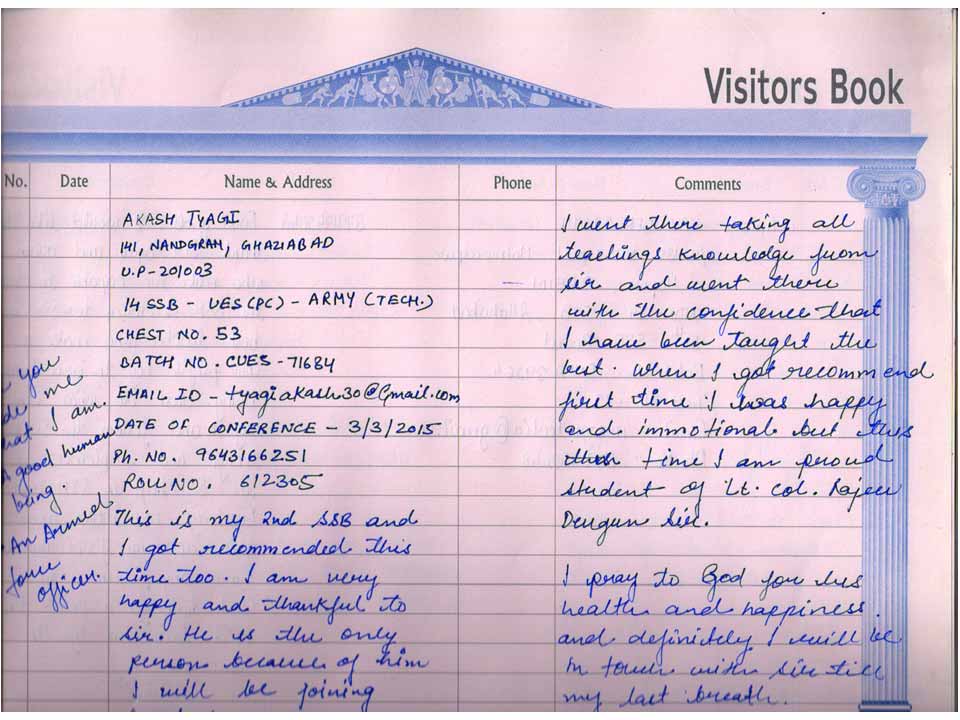 Visitors Book
No. Date Name & Address Phone Comments
AKASH TYAGI
141, NANDGRAM, GHAZIABAD
U.P-201003
14 SSB - UES (PC) - ARMY (TECH.)
CHEST NO. 53
BATCH NO. CUES - 71684
EMAIL ID - tyagiakash30@Gmail.com
DATE OF CONFERENCE - 3/3/2015
Ph. NO. 9643166251
ROLL NO. 612305
This is my 2nd SSB and
I got recommended this
time too. I am very
happy and thankful to
sir. He is the only
person because of him
I will be joining
I went there taking all
teachings knowledge from
sir and went there
with the confidence that
I have been taught the
best. when I got recommend
first time I was happy
and immotional but this
time I am proud
student of Lt. Col. Rajeev
Devgun Sir.
I pray to God for his
health and happiness.
and definitely I will be
in touch with sir till
my last breath.
you
me
I am.
good human
being.
An Armed
force
officer.